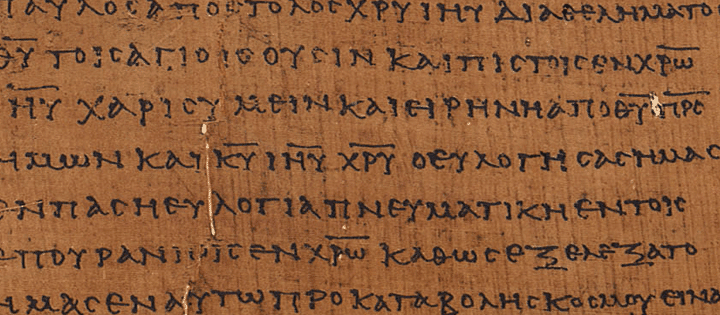 ΠΑΥΛΟΣ ΑΠΟϹΤΟΛΟϹ ΧΡΥ ΙΗΥ ΔΙΑ ΘΕΛΗΜΑΤΟϹ
Θ͞Υ ΤΟΙϹ ΑΓΙΟΙϹ ΟΥϹΙΝ ΚΑΙ ΠΙϹΤΟΙϹ ΕΝ Χ͞Ρ͞Ω
Ι͞Η͞Υ ΧΑΡΙϹ ΥΜΕΙΝ ΚΑΙ ΕΙΡΗΝΗ ΑΠΟ Θ͞Υ Π͞Ρ͞Ϲ
ΗΜΩΝ ΚΑΙ Κ͞Υ Ι͞Η͞Υ Χ͞Ρ͞Υ Ο ΕΥΛΟΓΗϹΑϹ ΗΜΑϹ
ΕΝ ΠΑϹΗ ΕΥΛΟΓΙΑ ΠΝΕΥΜΑΤΙΚΗ ΕΝ ΤΟΙϹ
ΕΠΟΥΡΑΝΙΟΙϹ ΕΝ Χ͞Ρ͞Ω ΚΑΘΩϹ ΕΞΕΛΕΞΑΤΟ
ΗΜΑϹ ΕΝ ΑΥΤΩ ΠΡΟ ΚΑΤΑΒΟΛΗϹ ΚΟϹΜΟΥ ΕΙΝΑ